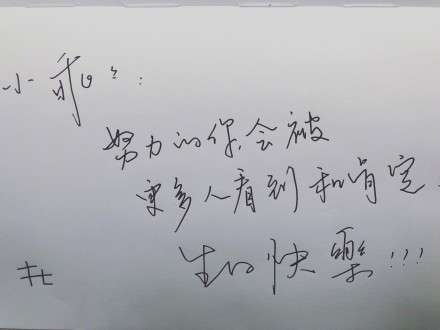 小乖〻：
努力的你,会被
更多人看到和肯定.
生日快樂!!!